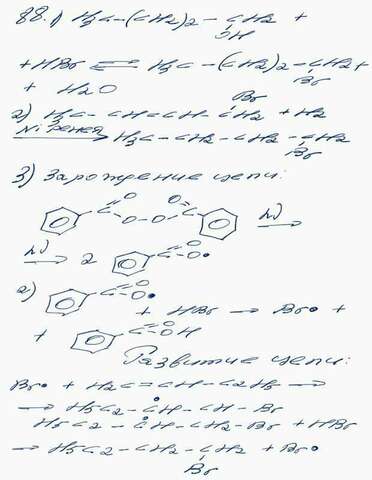 88.1) H3C-(CH2)2-CH2 +
OH
+ HBr ⇌ H3C-(CH2)2-CH2 +
Br
+ H2O
Br
2) H3C-CH=CH-CH2 + H2
Ni Ренея → H3C-CH2-CH2-CH2
Br
3) Зарождение цепи:
C=O O-O O=C hν →
hν → 2 C=O O•
2) C=O O•
+ HBr → Br• +
+ C=O OH
Развитие цепи:
Br• + H2C=CH-C2H5 →
→ H5C2-ĊH-CH-Br
H5C2-ĊH-CH2-Br + HBr
→ H5C2-CH2-CH2 + Br•
Br